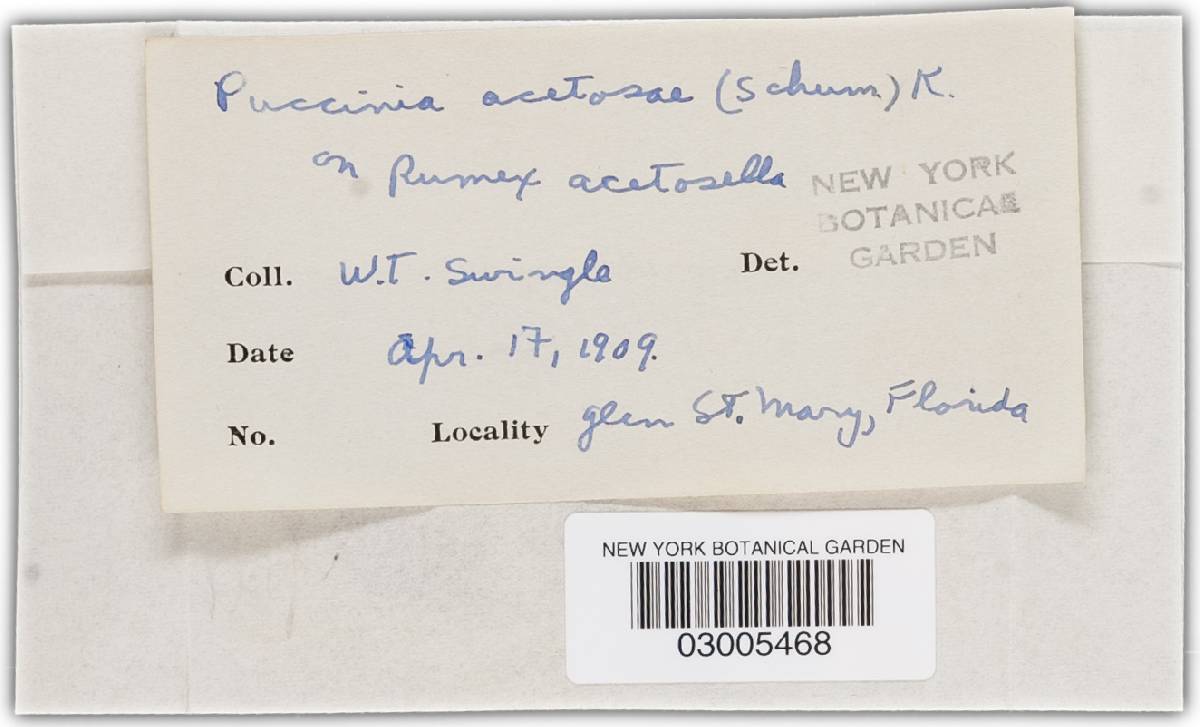 Puccinia acetosae (Schum.) K.
on Rumex acetosella
NEW YORK
BOTANICAL
GARDEN
Coll. W.T. Swingle Det.
Date Apr. 17, 1909.
No. Locality glen St. Mary, Florida
NEW YORK BOTANICAL GARDEN
03005468